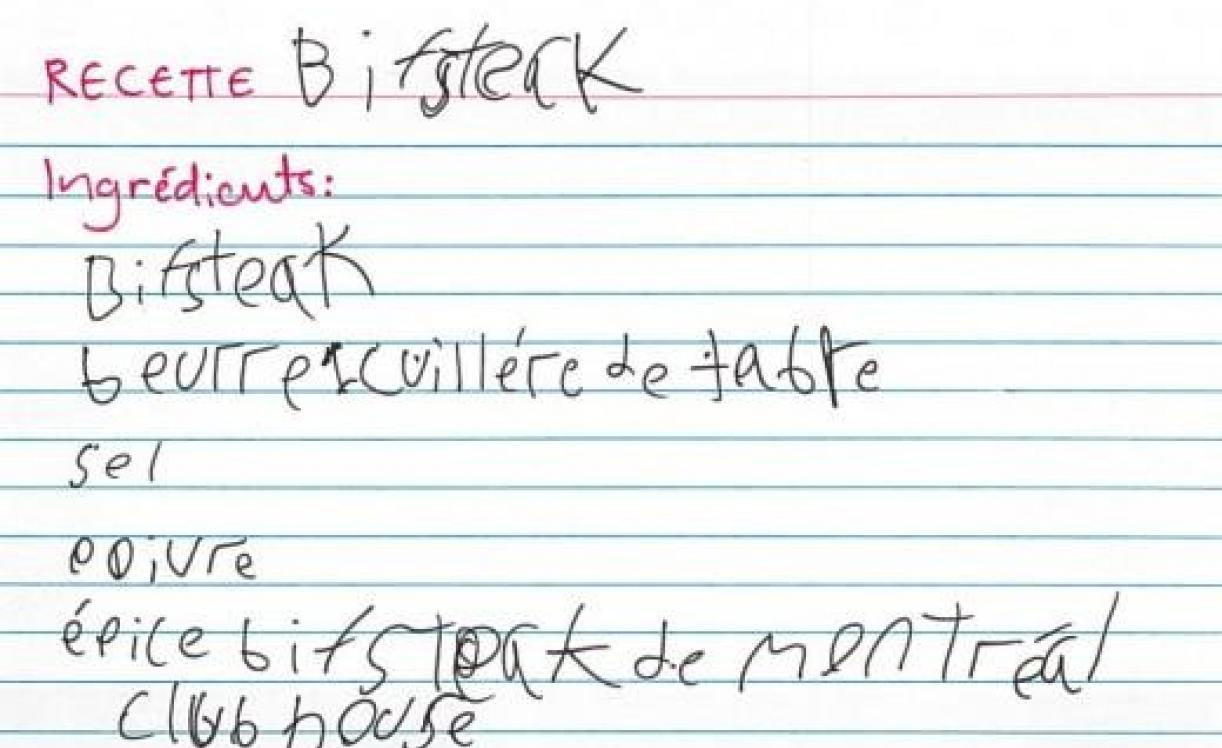 RECETTE Bifsteak
Ingrédients:
Bifsteak
beurre 1 cuillére de table
sel
poivre
épice bifsteak de montréal
club house